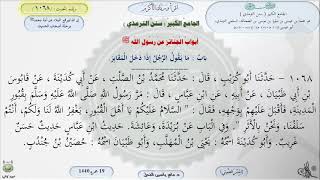 الجامع الكبير ( سنن الترمذي )
أبواب الجنائز عن رسول الله ﷺ
بابُ : مَا يَقُولُ الرَّجُلُ إِذَا دَخَلَ المَقَابِرَ
١٠٦٨ - حَدَّثَنَا أَبُو كُرَيْبٍ ، قَالَ : حَدَّثَنَا مُحَمَّدُ بْنُ الصَّلْتِ ، عَنْ أَبِي كُدَيْنَةَ ، عَنْ قَابُوسَ
بْنِ أَبِي ظَبْيَانَ ، عَنْ أَبِيهِ ، عَنِ ابْنِ عَبَّاسٍ ، قَالَ : مَرَّ رَسُولُ اللهِ صَلَّى اللهُ عَلَيْهِ وَسَلَّمَ بِقُبُورِ
المَدِينَةِ ، فَأَقْبَلَ عَلَيْهِمْ بِوَجْهِهِ ، فَقَالَ : السَّلَامُ عَلَيْكُمْ يَا أَهْلَ القُبُورِ ، يَغْفِرُ اللهُ لَنَا وَلَكُمْ ، أَنْتُمْ
سَلَفُنَا ، وَنَحْنُ بِالأَثَرِ . وَفِي البَابِ عَنْ بُرَيْدَةَ ، وَعَائِشَةَ . حَدِيثُ ابْنِ عَبَّاسٍ حَدِيثٌ حَسَنٌ
غَرِيبٌ . وَأَبُو كُدَيْنَةَ اسْمُهُ : يَحْيَى بْنُ المُهَلَّبِ ، وَأَبُو ظَبْيَانَ اسْمُهُ : حُصَيْنُ بْنُ جُنْدُبٍ .